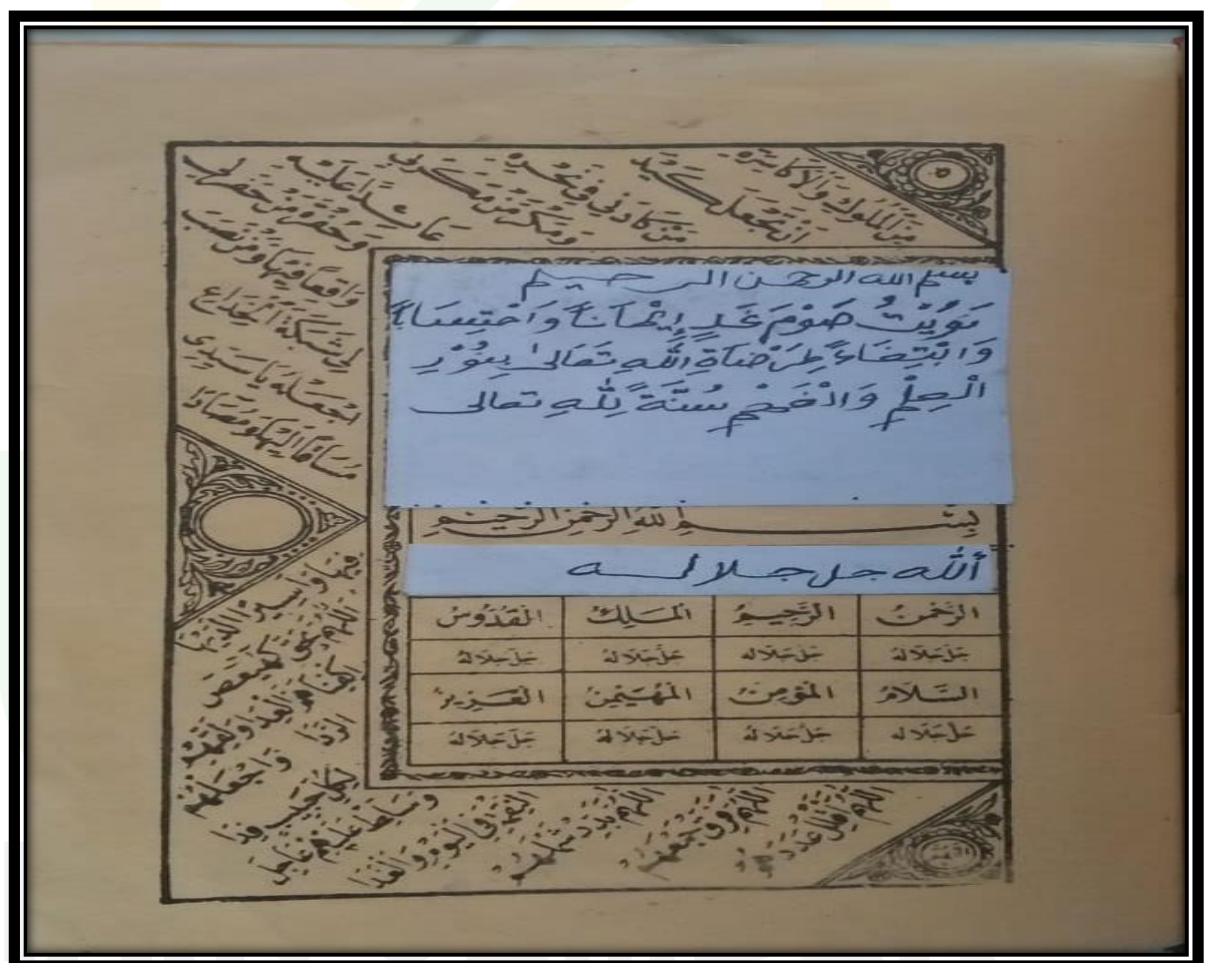 مِنَ الْمُلُوكِ وَالْأَكَاسِرَةِ
اَنْ تَجْعَلَ كَيْدَ
مَنْ كَادَنِي فِي نَحْرِهِ
وَمَكْرَ مَنْ مَكَرَ بِي
عَائِدًا عَلَيْهِ
وَحُفْرَةَ مَنْ حَفَرَ لِي
وَاقِعًا فِيهَا وَمَنْ نَصَبَ
لِي شَبَكَةَ الْخِدَاعِ
اِجْعَلْهُ يَا سَيِّدِي
مُسَاقًا اِلَيْهَا وَمُصَادًا
بسم الله الرحمن الرحيم
نَوَيْتُ صَوْمَ غَدٍ اِيْمَاناً وَاحْتِسَاباً
وَابْتِغَاءً لِمَرْضَاةِ اللهِ تَعَالىٰ بِنُوْرِ
الْعِلْمِ وَالْفَهْمِ سُنَّةً لِلّٰهِ تعالى
بِسْمِ اللهِ الرَّحْمٰنِ الرَّحِيْمِ
الله جل جلاله
الرَّحْمٰنُ الرَّحِيْمُ الْمَلِكُ الْقُدُّوْسُ
جَلَّ جَلَالُهُ جَلَّ جَلَالُهُ جَلَّ جَلَالُهُ جَلَّ جَلَالُهُ
السَّلَامُ الْمُؤْمِنُ الْمُهَيْمِنُ الْعَزِيْزُ
جَلَّ جَلَالُهُ جَلَّ جَلَالُهُ جَلَّ جَلَالُهُ جَلَّ جَلَالُهُ
اللّٰهُمَّ بَدِّدْ شَمْلَهُمْ
اللّٰهُمَّ فَرِّقْ جَمْعَهُمْ
اللّٰهُمَّ قَلِّلْ عَدَدَهُمْ